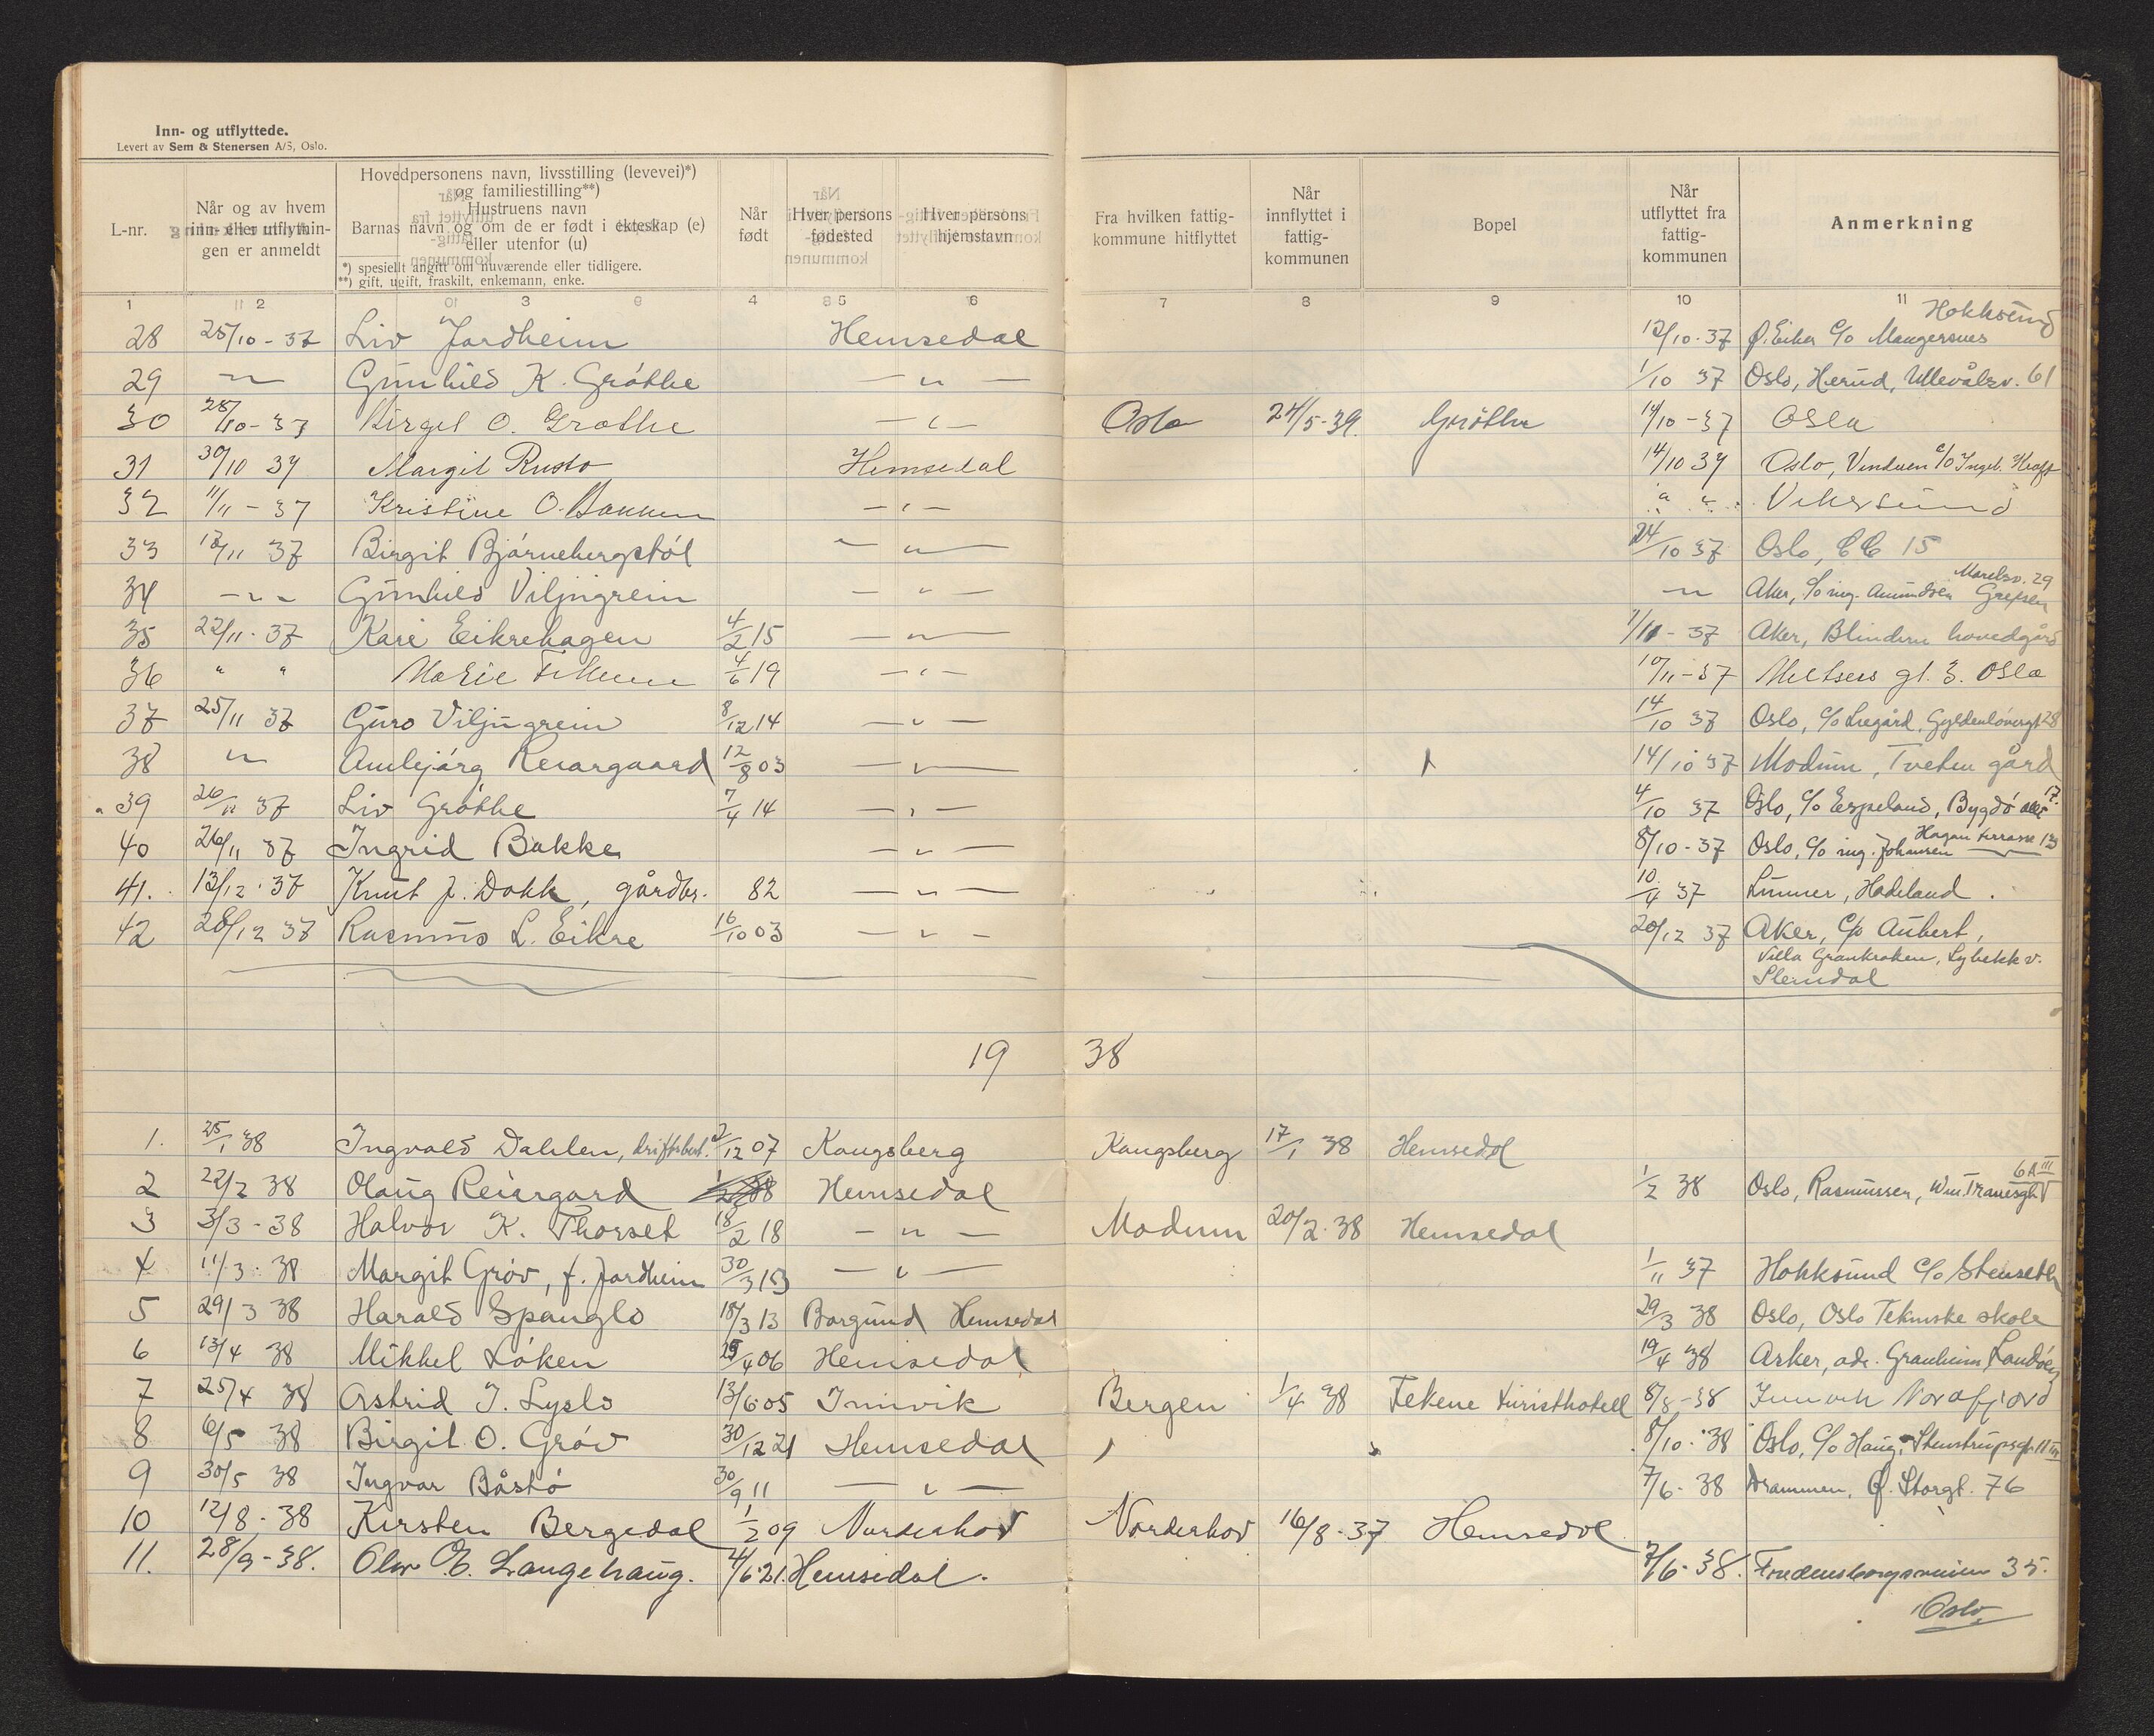 Inn- og utflyttede.
Levert av Sem & Stenersen A/S, Oslo.
L-nr.
Når og av hvem
inn- eller utflytnin-
gen er anmeldt
Hovedpersonens navn, livsstilling (levevei)*)
og familiestilling**)
Hustruens navn
Barnas navn og om de er født i ekteskap (e)
eller utenfor (u)
*) spesiellt angitt om nuværende eller tidligere.
**) gift, ugift, fraskilt, enkemann, enke.
Når
født
Hver persons
fødested
Hver persons
hjemstavn
Fra hvilken fattig-
kommune hitflyttet
Når
innflyttet i
fattig-
kommunen
Bopel
Når
utflyttet fra
fattig-
kommunen
Anmerkning
1 2 3 4 5 6 7 8 9 10 11
Hokksund
28 25/10-37 Liv Jordheim Hemsedal 12/10-37 Ø. Eiker c/o
29 -"- Gunhild K. Grøthe - " - 1/10 37 Oslo, Herud, Ullevålsv. 61
30 28/10-37 Birgit O. Grøthe - " - Oslo 24/5-39. Grøthe 14/10-37 Oslo
31 30/10 37 Margit Rusto Hemsedal 14/10 37 Oslo, c/o Ingeb.
32 11/11-37 Kristine O. Bakken - " - " " Vikersund
33 18/11 37 Birgit Bjørnebergstøl - " - 24/10 37 Oslo, 15
34 - " - Gunhild Viljugrein - " - - " - Aker, c/o ing. Amundsen Grefsen
29
35 22/11-37 Kari Eikrehagen 4/2 15 - " - 1/11-37 Aker, Blindern hovedgård
36 " " Marie 4/6 19 - " - 10/11-37 Meltzers gt. 3. Oslo
37 25/11 37 Guro Viljugrein 8/12 14 - " - 14/10 37 Oslo, c/o Gyldenløvesgt 28
38 " Ambjørg Reiargaard 12/8 03 - " - 14/10 37 Modum, Tveten gård
39 26/11 37 Liv Grøthe 7/4 14 - " - 4/10 37 Oslo, c/o Espeland, Bygdø alle 17.
40 26/11 37 Ingrid Bakke - " - 8/10-37 Oslo, c/o ing. Johansen Hagan terrasse 13
41. 13/12-37 Knut J. Dokk, gårdbr. 82 - " - 10/4 37 Lunner, Hadeland.
42 28/12 37 Rasmus L. Eikre 16/10 03 - " - 20/12 37 Aker, c/o Aubert,
Villa Grankroken, Lybekk v.
Slemdal
19 38
1. 25/1 38 Ingvald Dahlen, driftsbest. 2/12 07 Kongsberg Kongsberg 17/1 38 Hemsedal
2 22/2 38 Olaug Reiergard Hemsedal 1/2 38 Oslo, Rasmussen, Wm Tranesgt. 6A III
3 3/3-38 Halvor K. Thorset 18/2 18 - " - Modum 20/2-38 Hemsedal
4 11/3-38 Margit Grøv, f. Jordheim 30/3 13 - " - 1/11 37 Hokksund c/o Stenseth
5 29/3 38 Harald Spanglo 18/3 13 Borgund Hemsedal 29/3 38 Oslo, Oslo Tekniske skole
6 13/4 38 Mikkel Løken 25/4 06 Hemsedal 19/4 38 Asker, adr. Granheim, Landøen
7 25/4 38 Astrid J. Lyslo 13/6 05 Innvik Bergen 1/4 38 Fekene turisthotell 8/8-38 Innvik Nordfjord
8 6/5 38 Birgit O. Grøv 30/12 21 Hemsedal 8/10-38 Oslo, c/o Haug, Stenstrupsgt. 11 III
9 30/5 38 Ingvar Båstø 30/9 11 - " - 7/6-38 Drammen, Ø. Storgt. 76
10 12/8-38 Kirsten Bergedal 1/2 09 Norderhov Norderhov 16/8-37 Hemsedal
11. 28/9-38. Olav E. Langehaug. 4/6 21. Hemsedal. 7/6-38. Fredensborgveien 35.
Oslo